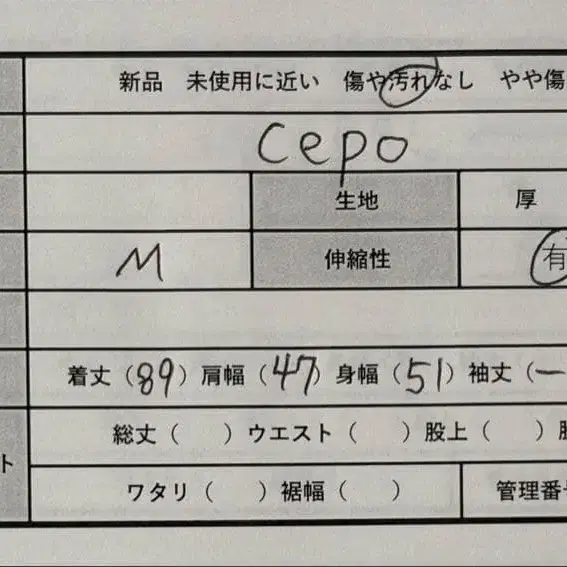 新品 未使用に近い 傷や汚れなし やや傷
cepo
生地 厚
M 伸縮性 有
着丈（89）肩幅（47）身幅（51）袖丈（ー
総丈（ ）ウエスト（ ）股上（ ）
ト
ワタリ（ ）裾幅（ ） 管理番